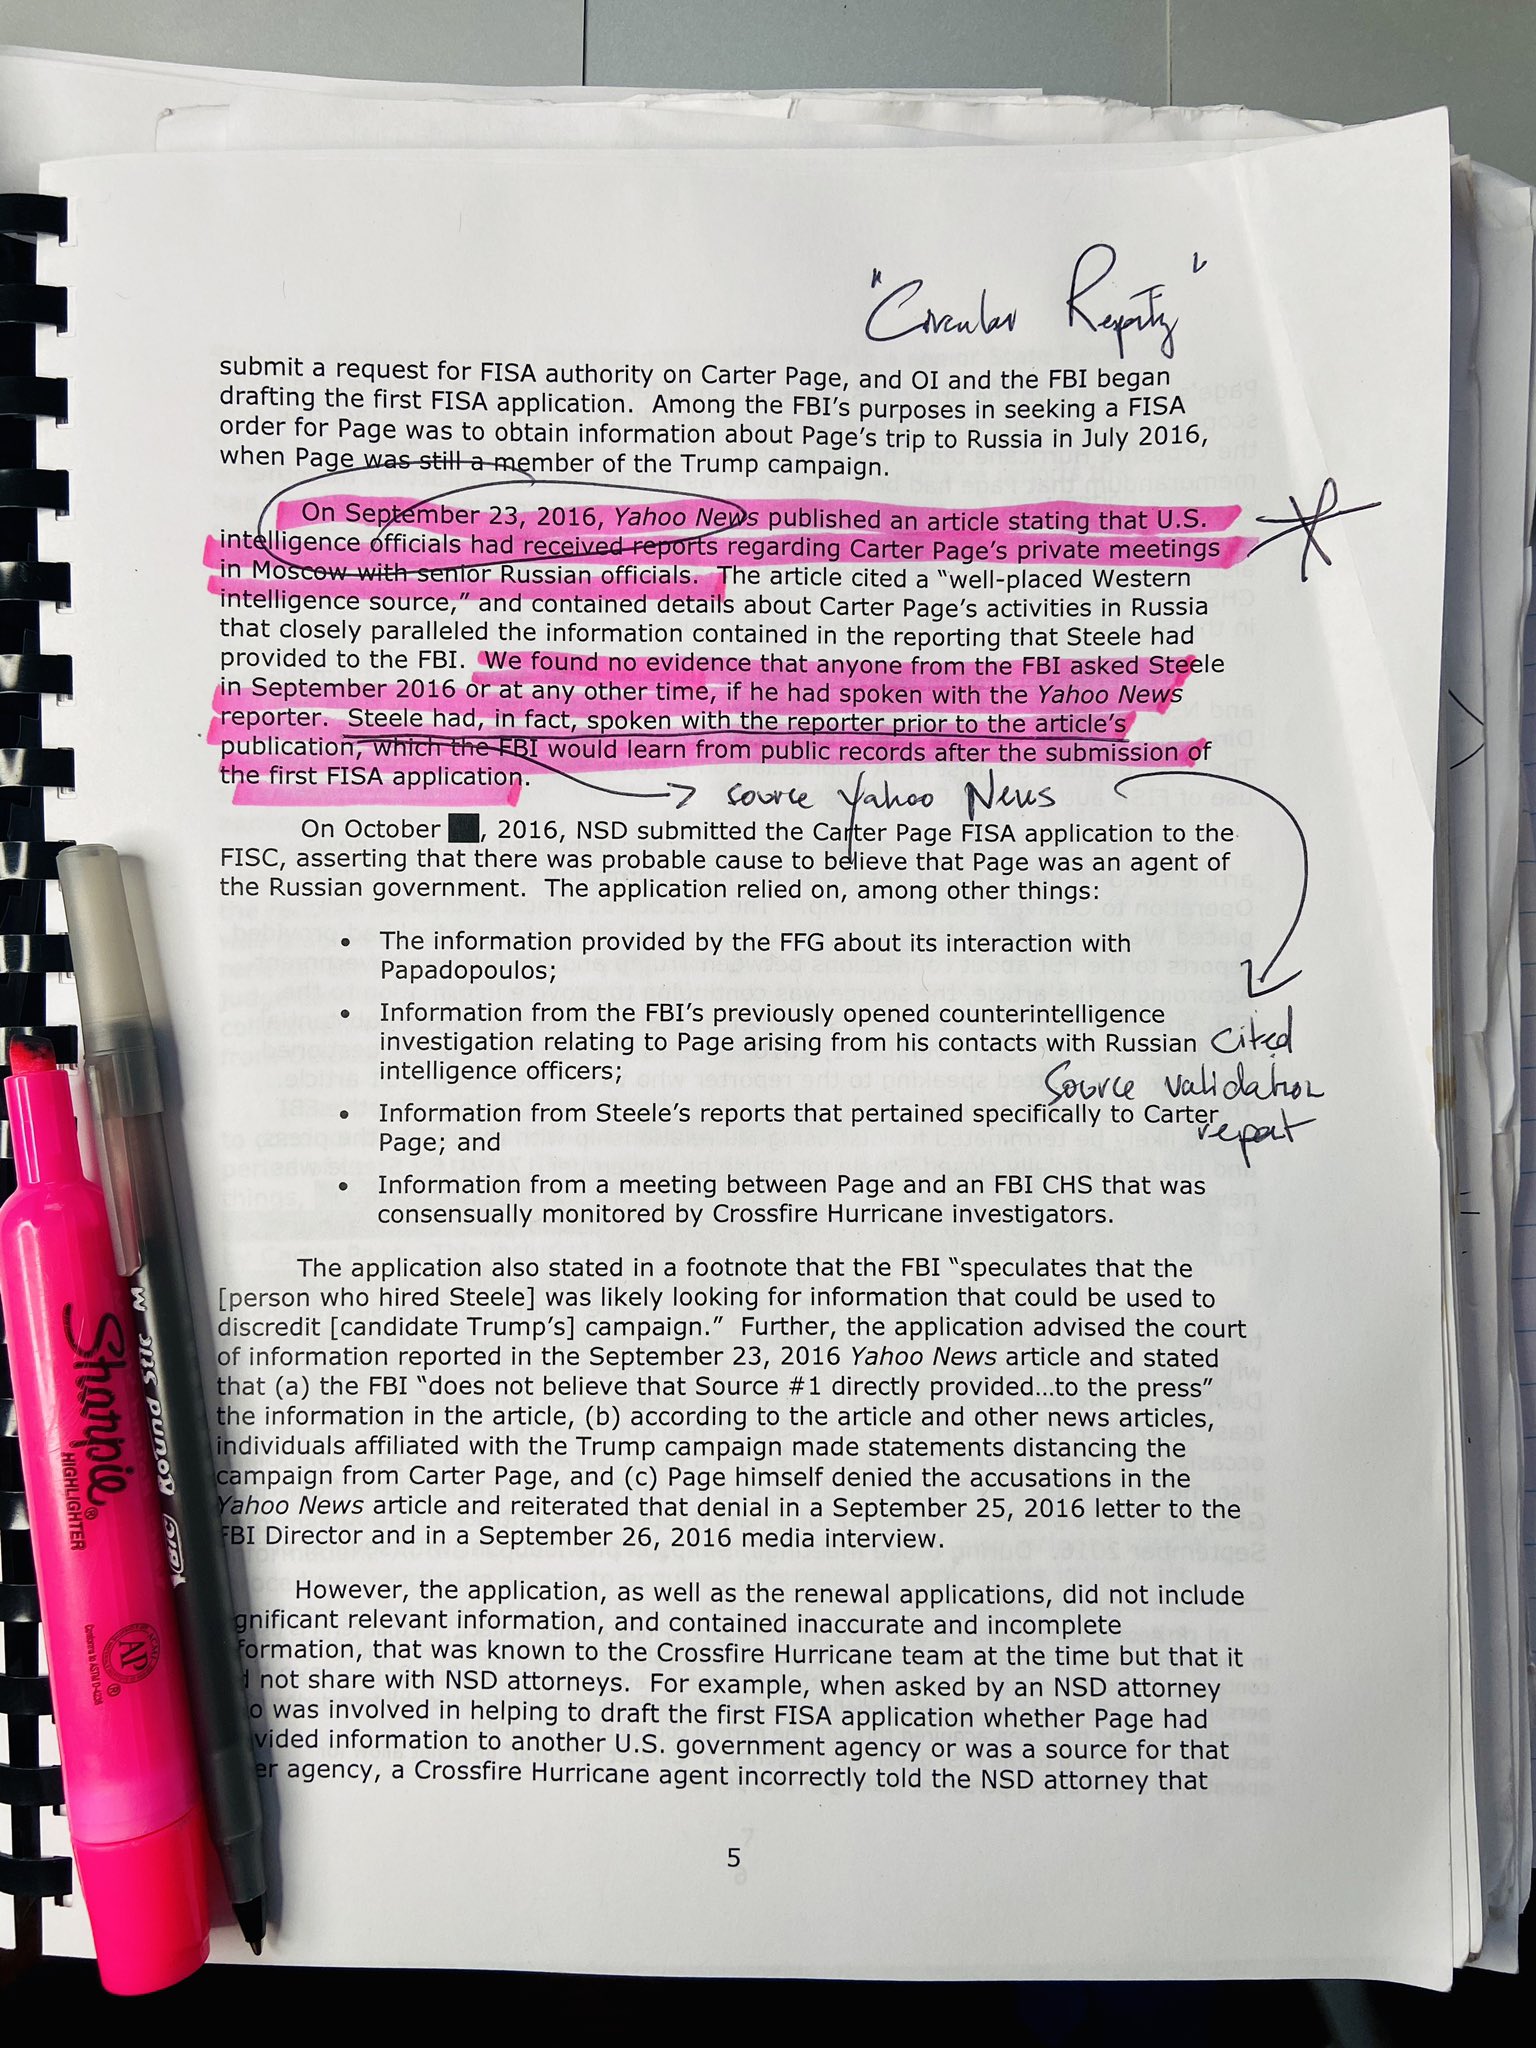 "Circular Reporting"
submit a request for FISA authority on Carter Page, and OI and the FBI began
drafting the first FISA application.  Among the FBI's purposes in seeking a FISA
order for Page was to obtain information about Page's trip to Russia in July 2016,
when Page was still a member of the Trump campaign.
On September 23, 2016, Yahoo News published an article stating that U.S.
intelligence officials had received reports regarding Carter Page's private meetings
in Moscow with senior Russian officials.  The article cited a "well-placed Western
intelligence source," and contained details about Carter Page's activities in Russia
that closely paralleled the information contained in the reporting that Steele had
provided to the FBI.  We found no evidence that anyone from the FBI asked Steele
in September 2016 or at any other time, if he had spoken with the Yahoo News
reporter.  Steele had, in fact, spoken with the reporter prior to the article's
publication, which the FBI would learn from public records after the submission of
the first FISA application.
source Yahoo News
On October , 2016, NSD submitted the Carter Page FISA application to the
FISC, asserting that there was probable cause to believe that Page was an agent of
the Russian government.  The application relied on, among other things:
• The information provided by the FFG about its interaction with
Papadopoulos;
• Information from the FBI's previously opened counterintelligence
investigation relating to Page arising from his contacts with Russian
intelligence officers;
cited
source validation
report
• Information from Steele's reports that pertained specifically to Carter
Page; and
• Information from a meeting between Page and an FBI CHS that was
consensually monitored by Crossfire Hurricane investigators.
The application also stated in a footnote that the FBI "speculates that the
[person who hired Steele] was likely looking for information that could be used to
discredit [candidate Trump's] campaign."  Further, the application advised the court
of information reported in the September 23, 2016 Yahoo News article and stated
that (a) the FBI "does not believe that Source #1 directly provided...to the press"
the information in the article, (b) according to the article and other news articles,
individuals affiliated with the Trump campaign made statements distancing the
campaign from Carter Page, and (c) Page himself denied the accusations in the
Yahoo News article and reiterated that denial in a September 25, 2016 letter to the
FBI Director and in a September 26, 2016 media interview.
However, the application, as well as the renewal applications, did not include
gnificant relevant information, and contained inaccurate and incomplete
formation, that was known to the Crossfire Hurricane team at the time but that it
d not share with NSD attorneys.  For example, when asked by an NSD attorney
o was involved in helping to draft the first FISA application whether Page had
vided information to another U.S. government agency or was a source for that
er agency, a Crossfire Hurricane agent incorrectly told the NSD attorney that
5
Sharpie®
HIGHLIGHTER
AP
Conforms to ASTM D-4236
BIC Round Stic M